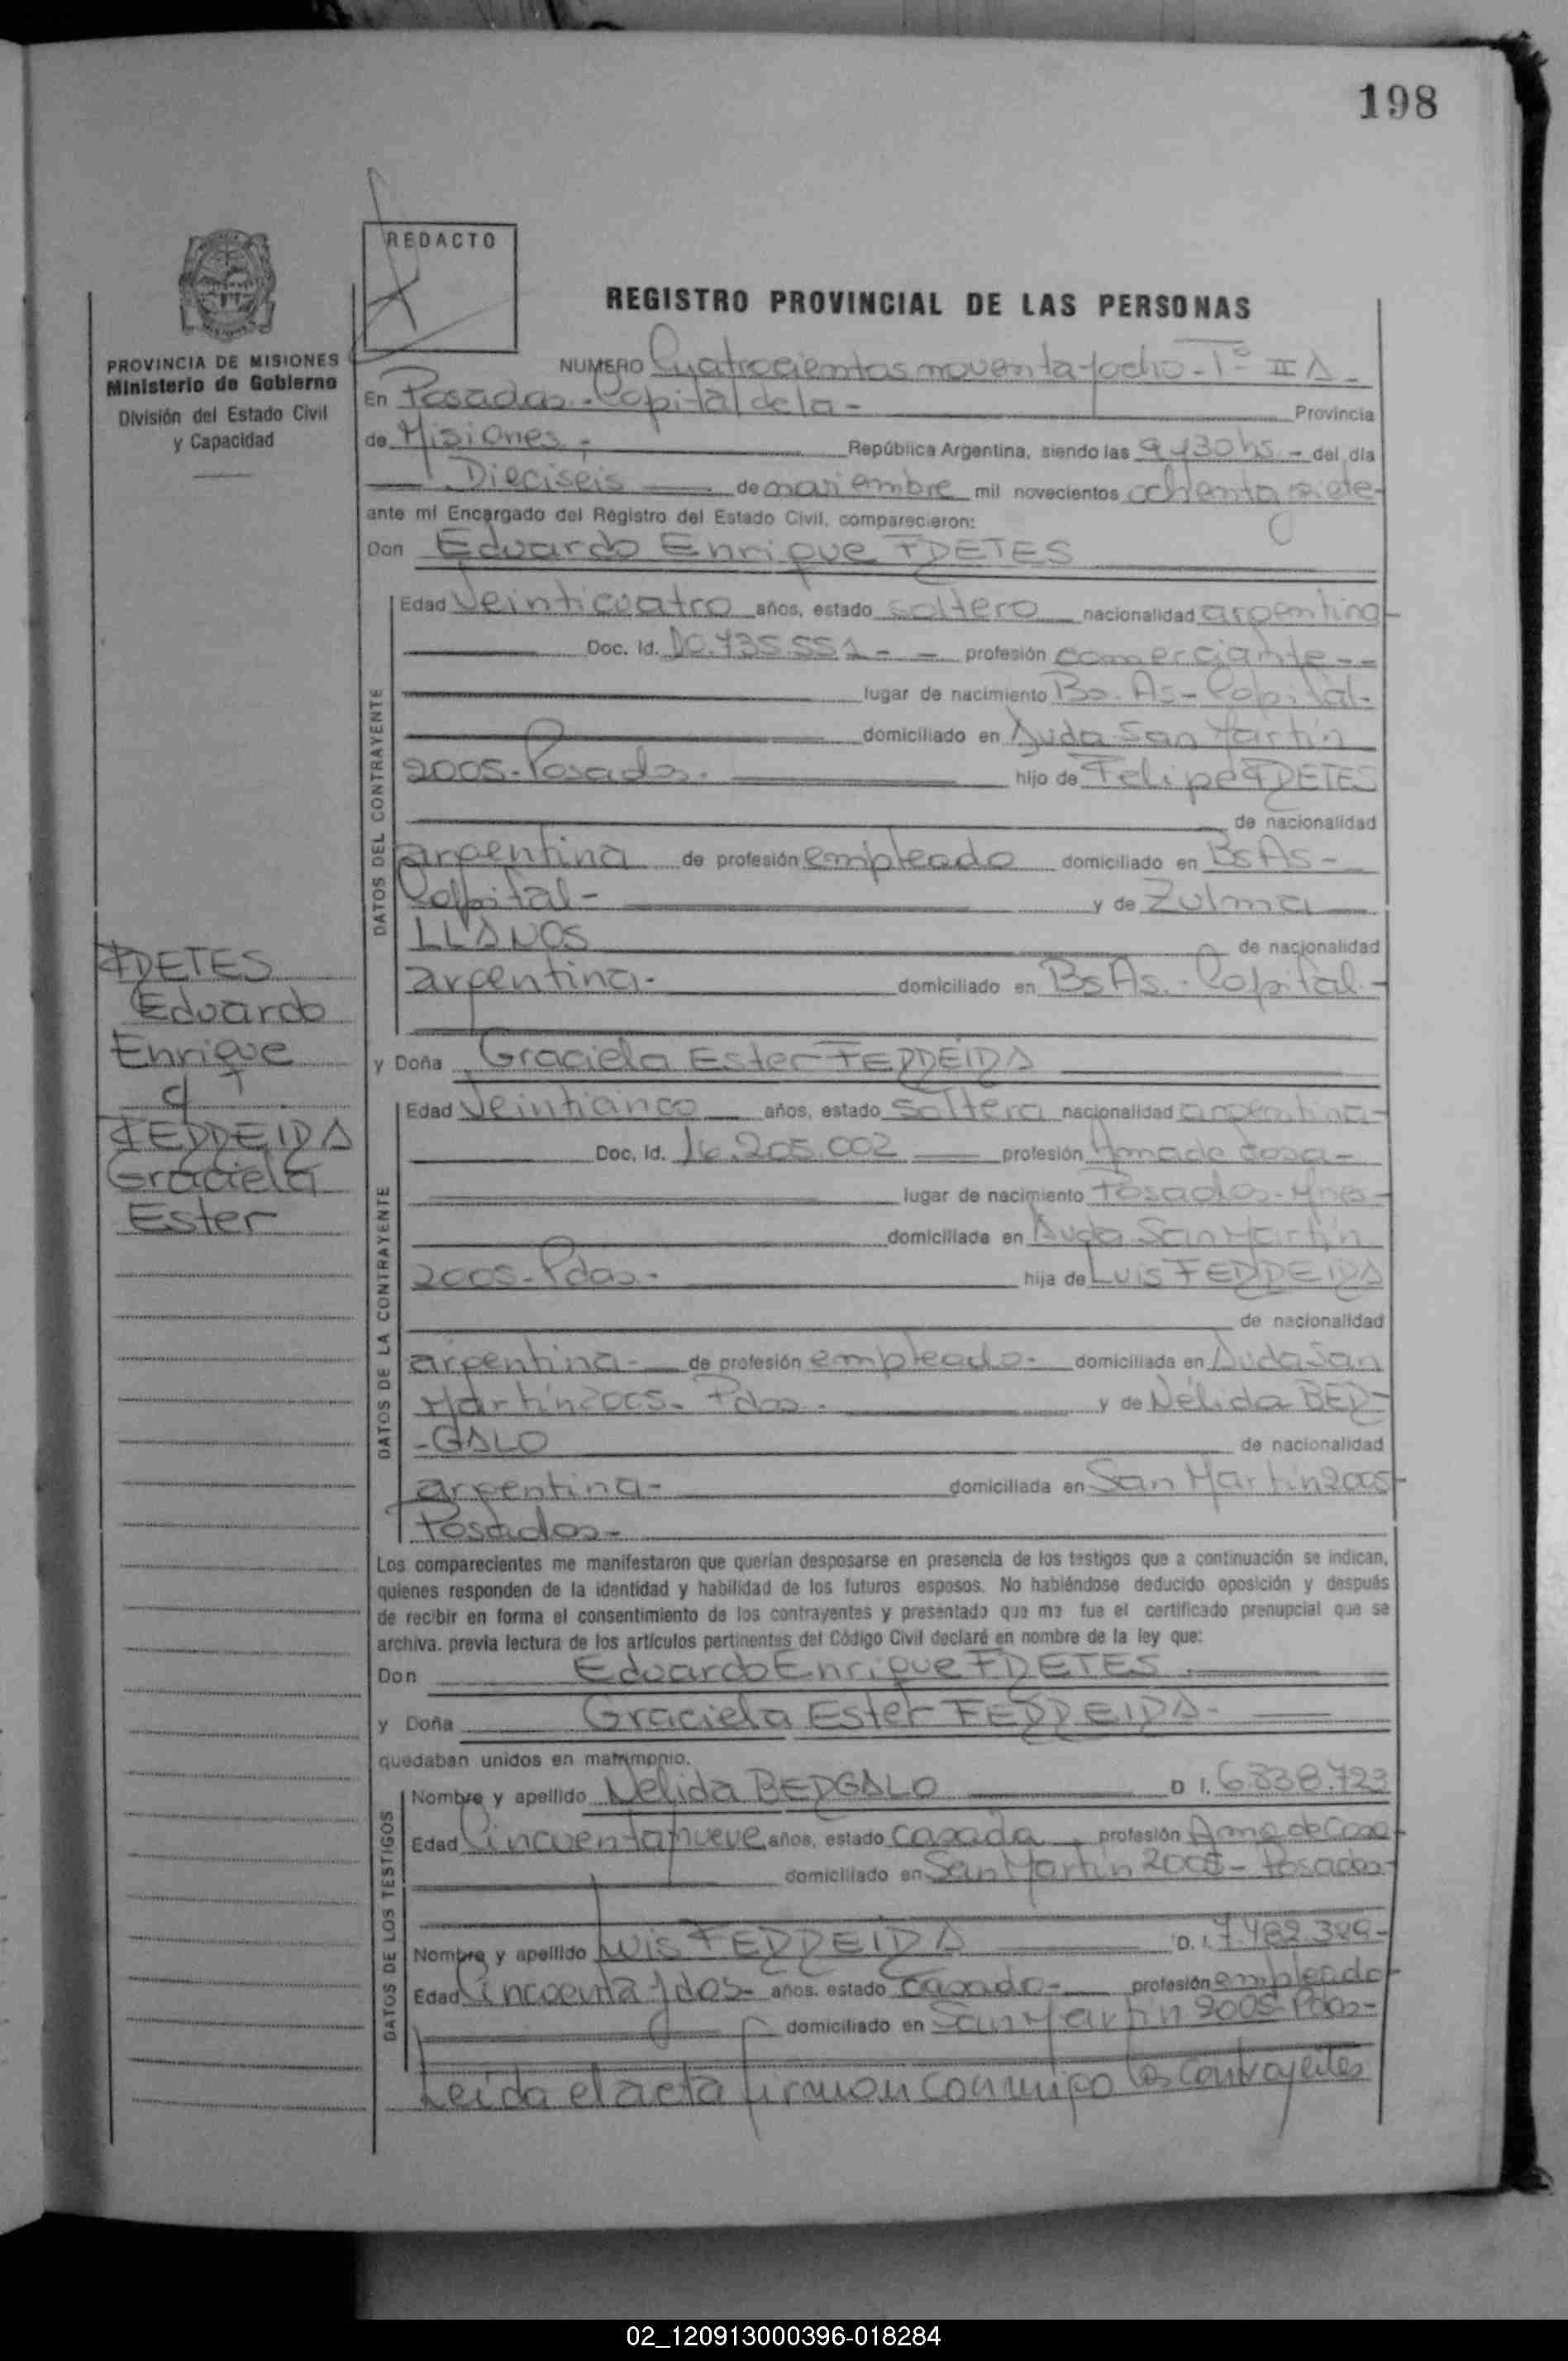 198
REDACTO
REGISTRO PROVINCIAL DE LAS PERSONAS
PROVINCIA DE MISIONES
Ministerio de Gobierno
División del Estado Civil
y Capacidad
NUMERO Cuatrocientos noventa y ocho - Tº II A -
En Posadas - Capital de la - Provincia
de Misiones - República Argentina, siendo las 9 y 30 hs - del día
Dieciseis de noviembre mil novecientos ochenta y siete -
ante mí Encargado del Registro del Estado Civil, comparecieron:
Don Eduardo Enrique FRETES
Edad Veinticuatro años, estado soltero nacionalidad argentina -
Doc. Id. profesión comerciante - -
lugar de nacimiento Bs. As - Capital -
domiciliado en Avda San Martín
2005 - Posadas - hijo de Felipe FRETES
de nacionalidad
argentina de profesión empleado domiciliado en Bs As -
Capital - y de Zulma
LLANOS de nacionalidad
argentina - domiciliado en Bs As. - Capital. -
y Doña Graciela Ester FERREIRA
Edad Veinticinco años, estado soltera nacionalidad argentina -
Doc. Id. 16.205.002 profesión Ama de Casa -
lugar de nacimiento Posadas - Mnes -
domiciliada en Avda San Martín
2005 - Pdas - hija de Luis FERREIRA
de nacionalidad
argentina - de profesión empleado - domiciliada en Avda San
Martín 2005 - Pdas - y de Nélida BER-
-GALO de nacionalidad
argentina - domiciliada en San Martín 2005 -
Posadas -
DATOS DEL CONTRAYENTE
DATOS DE LA CONTRAYENTE
FRETES
Eduardo
Enrique
c/
FERREIRA
Graciela
Ester
Los comparecientes me manifestaron que querían desposarse en presencia de los testigos que a continuación se indican,
quienes responden de la identidad y habilidad de los futuros esposos. No habiéndose deducido oposición y después
de recibir en forma el consentimiento de los contrayentes y presentado que me fue el certificado prenupcial que se
archiva. previa lectura de los artículos pertinentes del Código Civil declaré en nombre de la ley que:
Don Eduardo Enrique FRETES
y Doña Graciela Ester FERREIRA -
quedaban unidos en matrimonio.
DATOS DE LOS TESTIGOS
Nombre y apellido Nelida BERGALO D I. 6.838.723
Edad Cincuenta y nueve años, estado casada, profesión Ama de Casa
domiciliado en San Martín 2005 - Posadas -
Nombre y apellido Luis FERREIRA D. I. 7.482.389 -
Edad Cincuenta y dos - años. estado casado - profesión empleado
domiciliado en San Martín 2005 - Pdas -
Leida el acta firman conmigo los contrayentes
02_120913000396-018284